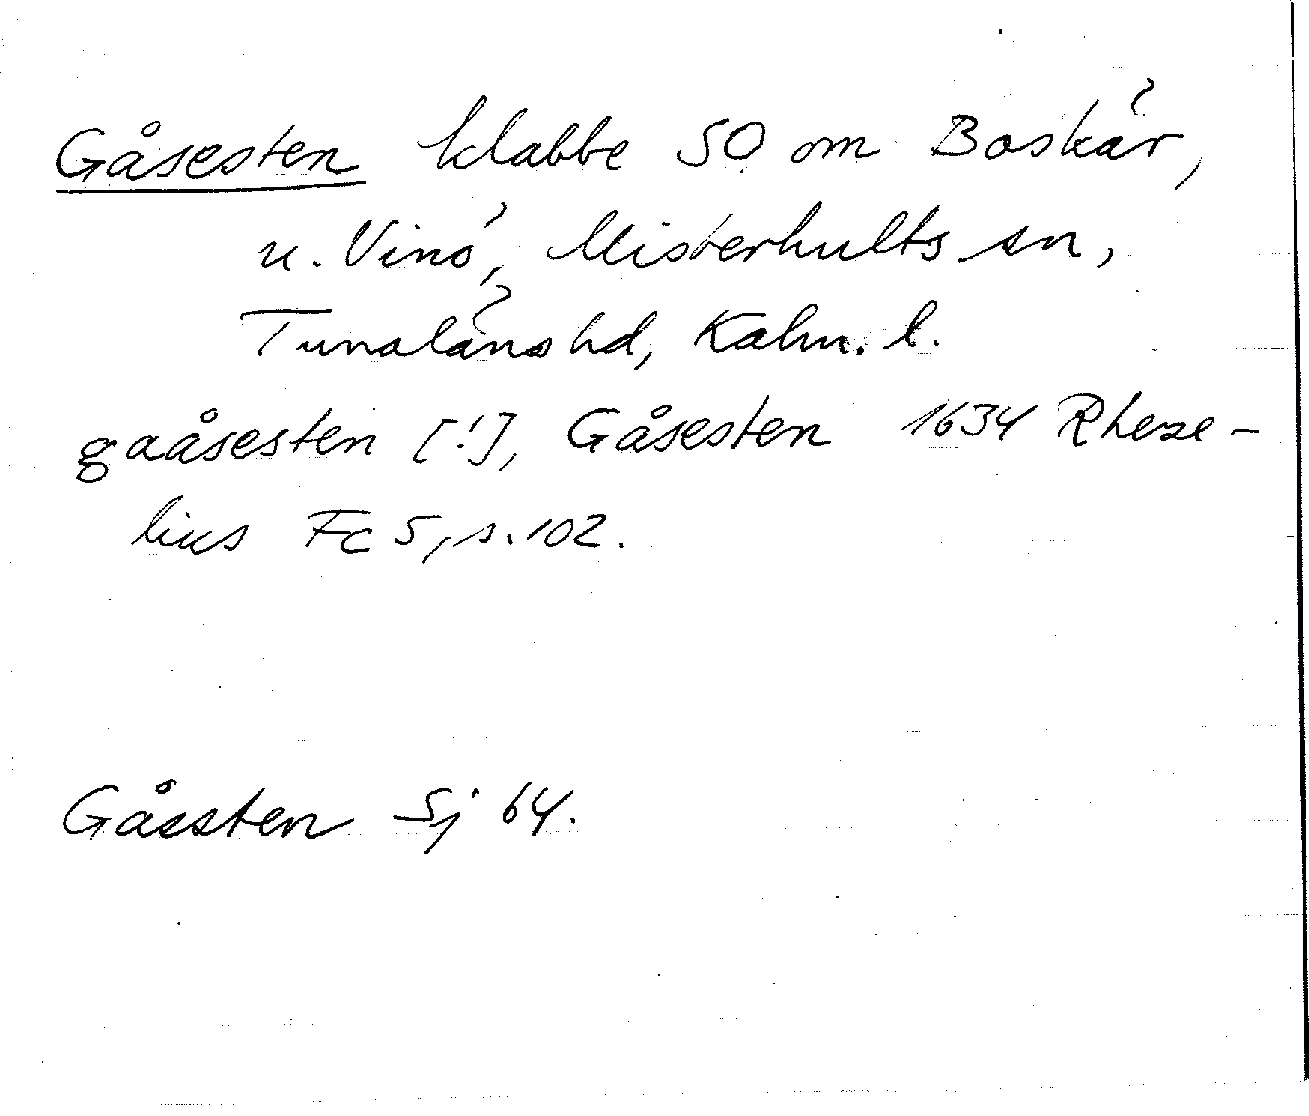 Gåsesten klabbe SO om Boskär,
u. Vinö, Misterhults sn,
Tunaläns hd, Kalm. l.
gaåsesten [!], Gåsesten 1634 Rheze-
lius Fc 5, s. 102.
Gåssten Sj 64.